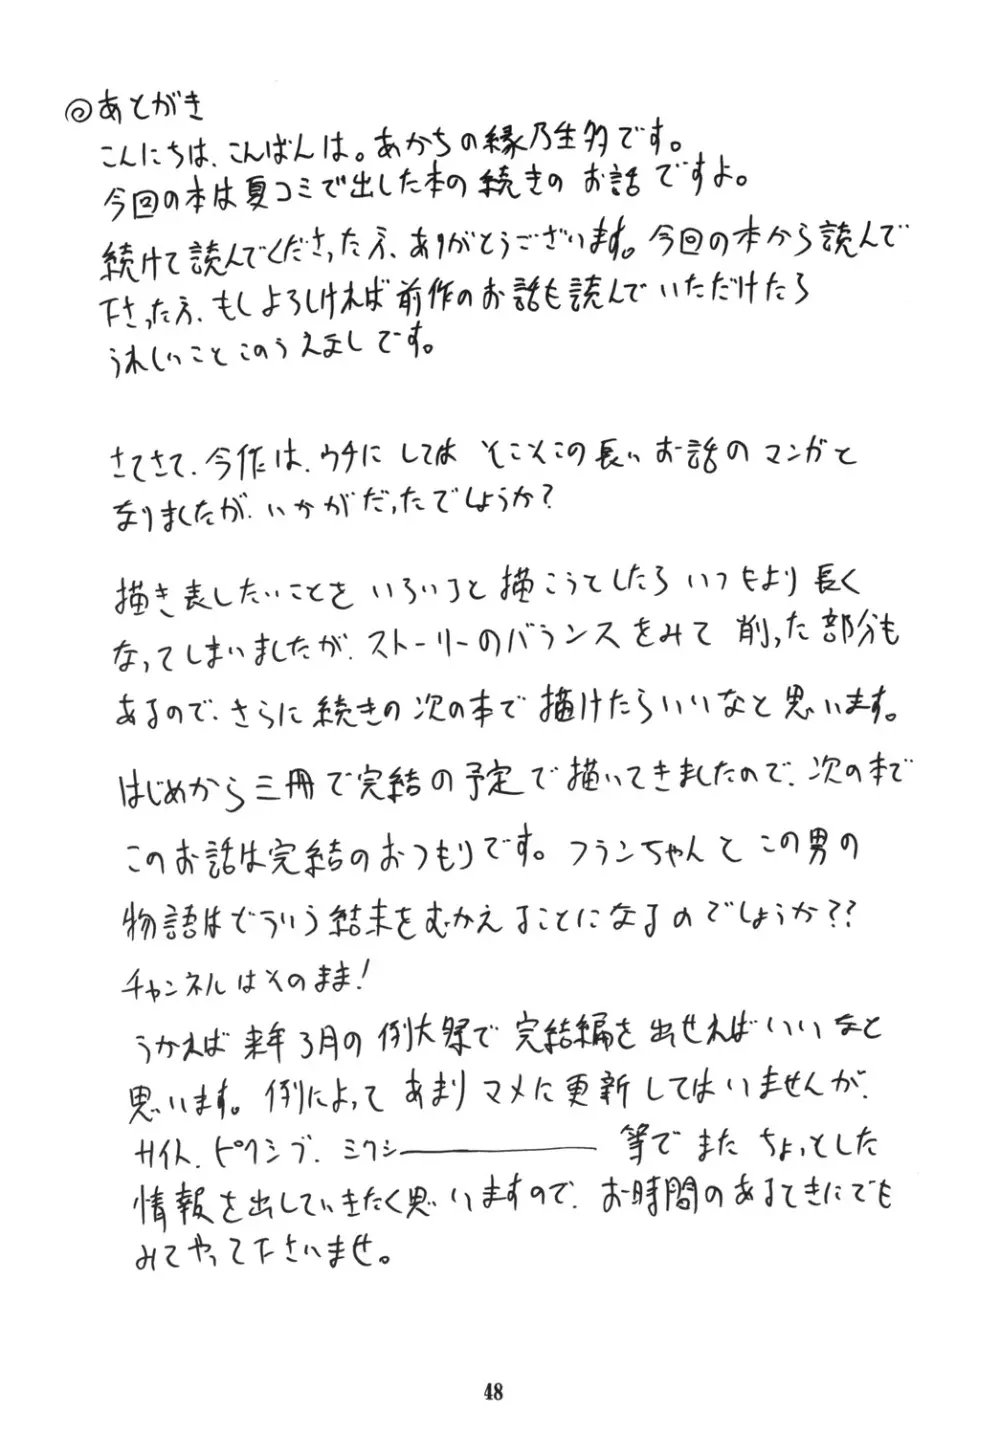 ◎あとがき
こんにちは、こんばんは。あかちの縁乃生多です。
今回の本は夏コミで出した本の続きのお話ですよ。
続けて読んでくださった方、ありがとうございます。今回の本から読んで
下さった方、もしよろしければ前作のお話も読んでいただけたら
うれしいことこのうえなしです。
さてさて、今作は、ウチにしてはそこそこの長いお話のマンガと
なりましたが、いかがだったでしょうか?
描き表したいことをいろいろと描こうとしたらいつもより長く
なってしまいましたが、ストーリーのバランスをみて削った部分も
あるので、さらに続きの次の本で描けたらいいなと思います。
はじめから三冊で完結の予定で描いてきましたので、次の本で
このお話は完結のおつもりです。フランちゃんとこの男の
物語はどういう結末をむかえることになるのでしょうか??
チャンネルはそのまま!
うかれば来年3月の例大祭で完結編を出せればいいなと
思います。例によってあまりマメに更新してはいませんが、
サイト、ピクシブ、ミクシー等でまたちょっとした
情報を出していきたく思いますので、お時間のあるときにでも
みてやって下さいませ。
48